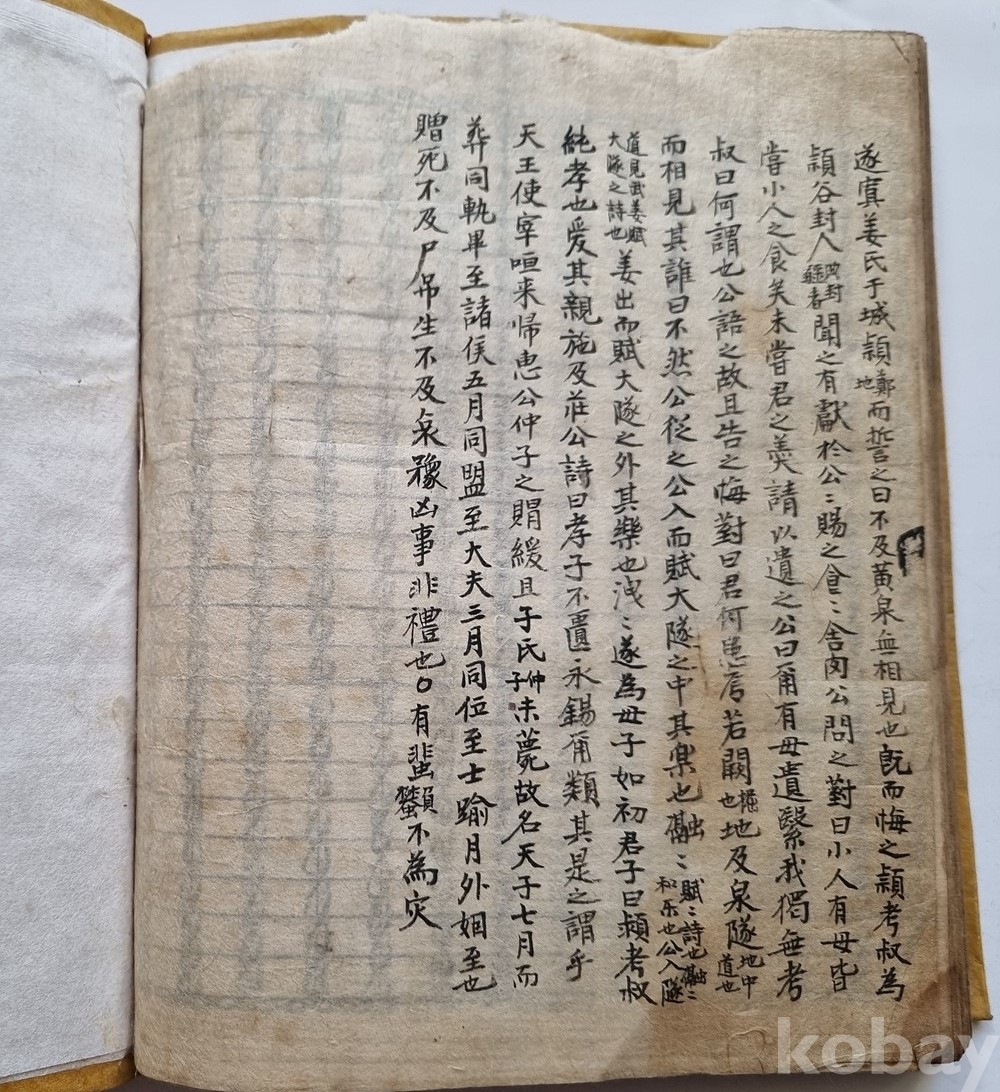 遂寘姜氏于城頴鄭地而誓之曰不及黃泉無相見也旣而悔之頴考叔為
頴谷封人典封疆者聞之有獻於公〻賜之食〻舍肉公問之對曰小人有母皆
嘗小人之食矣未嘗君之羹請以遺之公曰爾有母遺繄我獨無考
叔曰何謂也公語之故且告之悔對曰君何患焉若闕掘也地及泉隧地中道也
而相見其誰曰不然公從之公入而賦大隧之中其樂也融〻賦〻詩也融〻和乐也公入隧
道見武姜賦大隧之詩也姜出而賦大隧之外其樂也洩〻遂為母子如初君子曰頴考叔
純孝也爱其親施及莊公詩曰孝子不匱永錫爾類其是之謂乎
天王使宰咺来帰恵公仲子之賵緩且子氏仲子未薨故名天子七月而
葬同軌畢至諸侯五月同盟至大夫三月同位至士踰月外姻至也
贈死不及尸吊生不及哀豫凶事非禮也○有蜚蠜不為灾
kobay